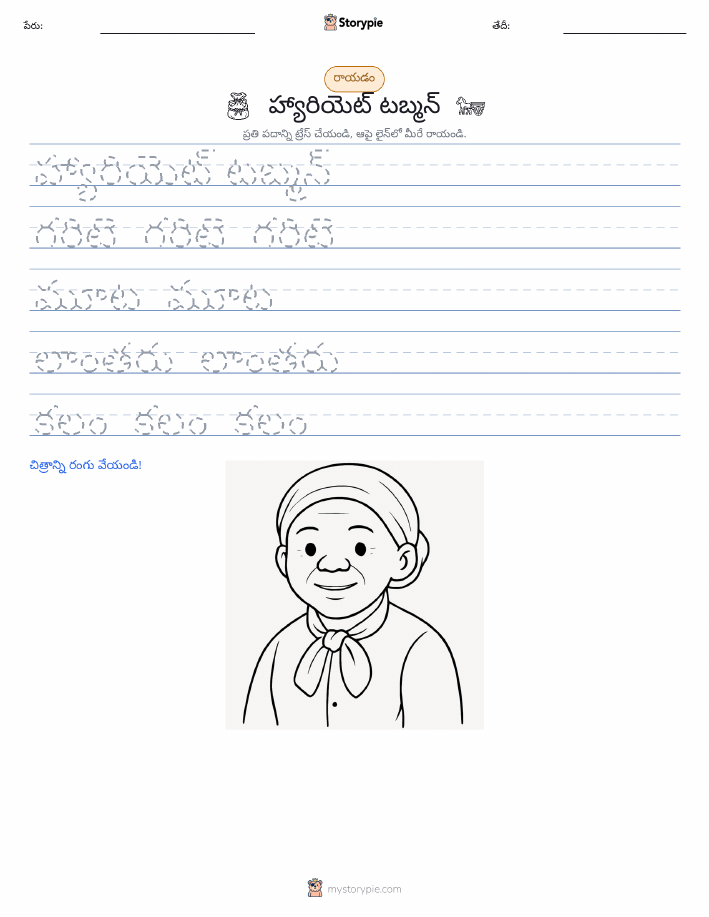 పేరు:
Storypie
తేదీ:
రాయడం
హ్యారియెట్ టబ్మన్
ప్రతి పదాన్ని ట్రేస్ చేయండి, ఆపై లైన్‌లో మీరే రాయండి.
హ్యారియెట్ టబ్మన్
గరిటె గరిటె గరిటె
మూట మూట
లాంతరు లాంతరు
కలం కలం కలం
చిత్రాన్ని రంగు వేయండి!
mystorypie.com